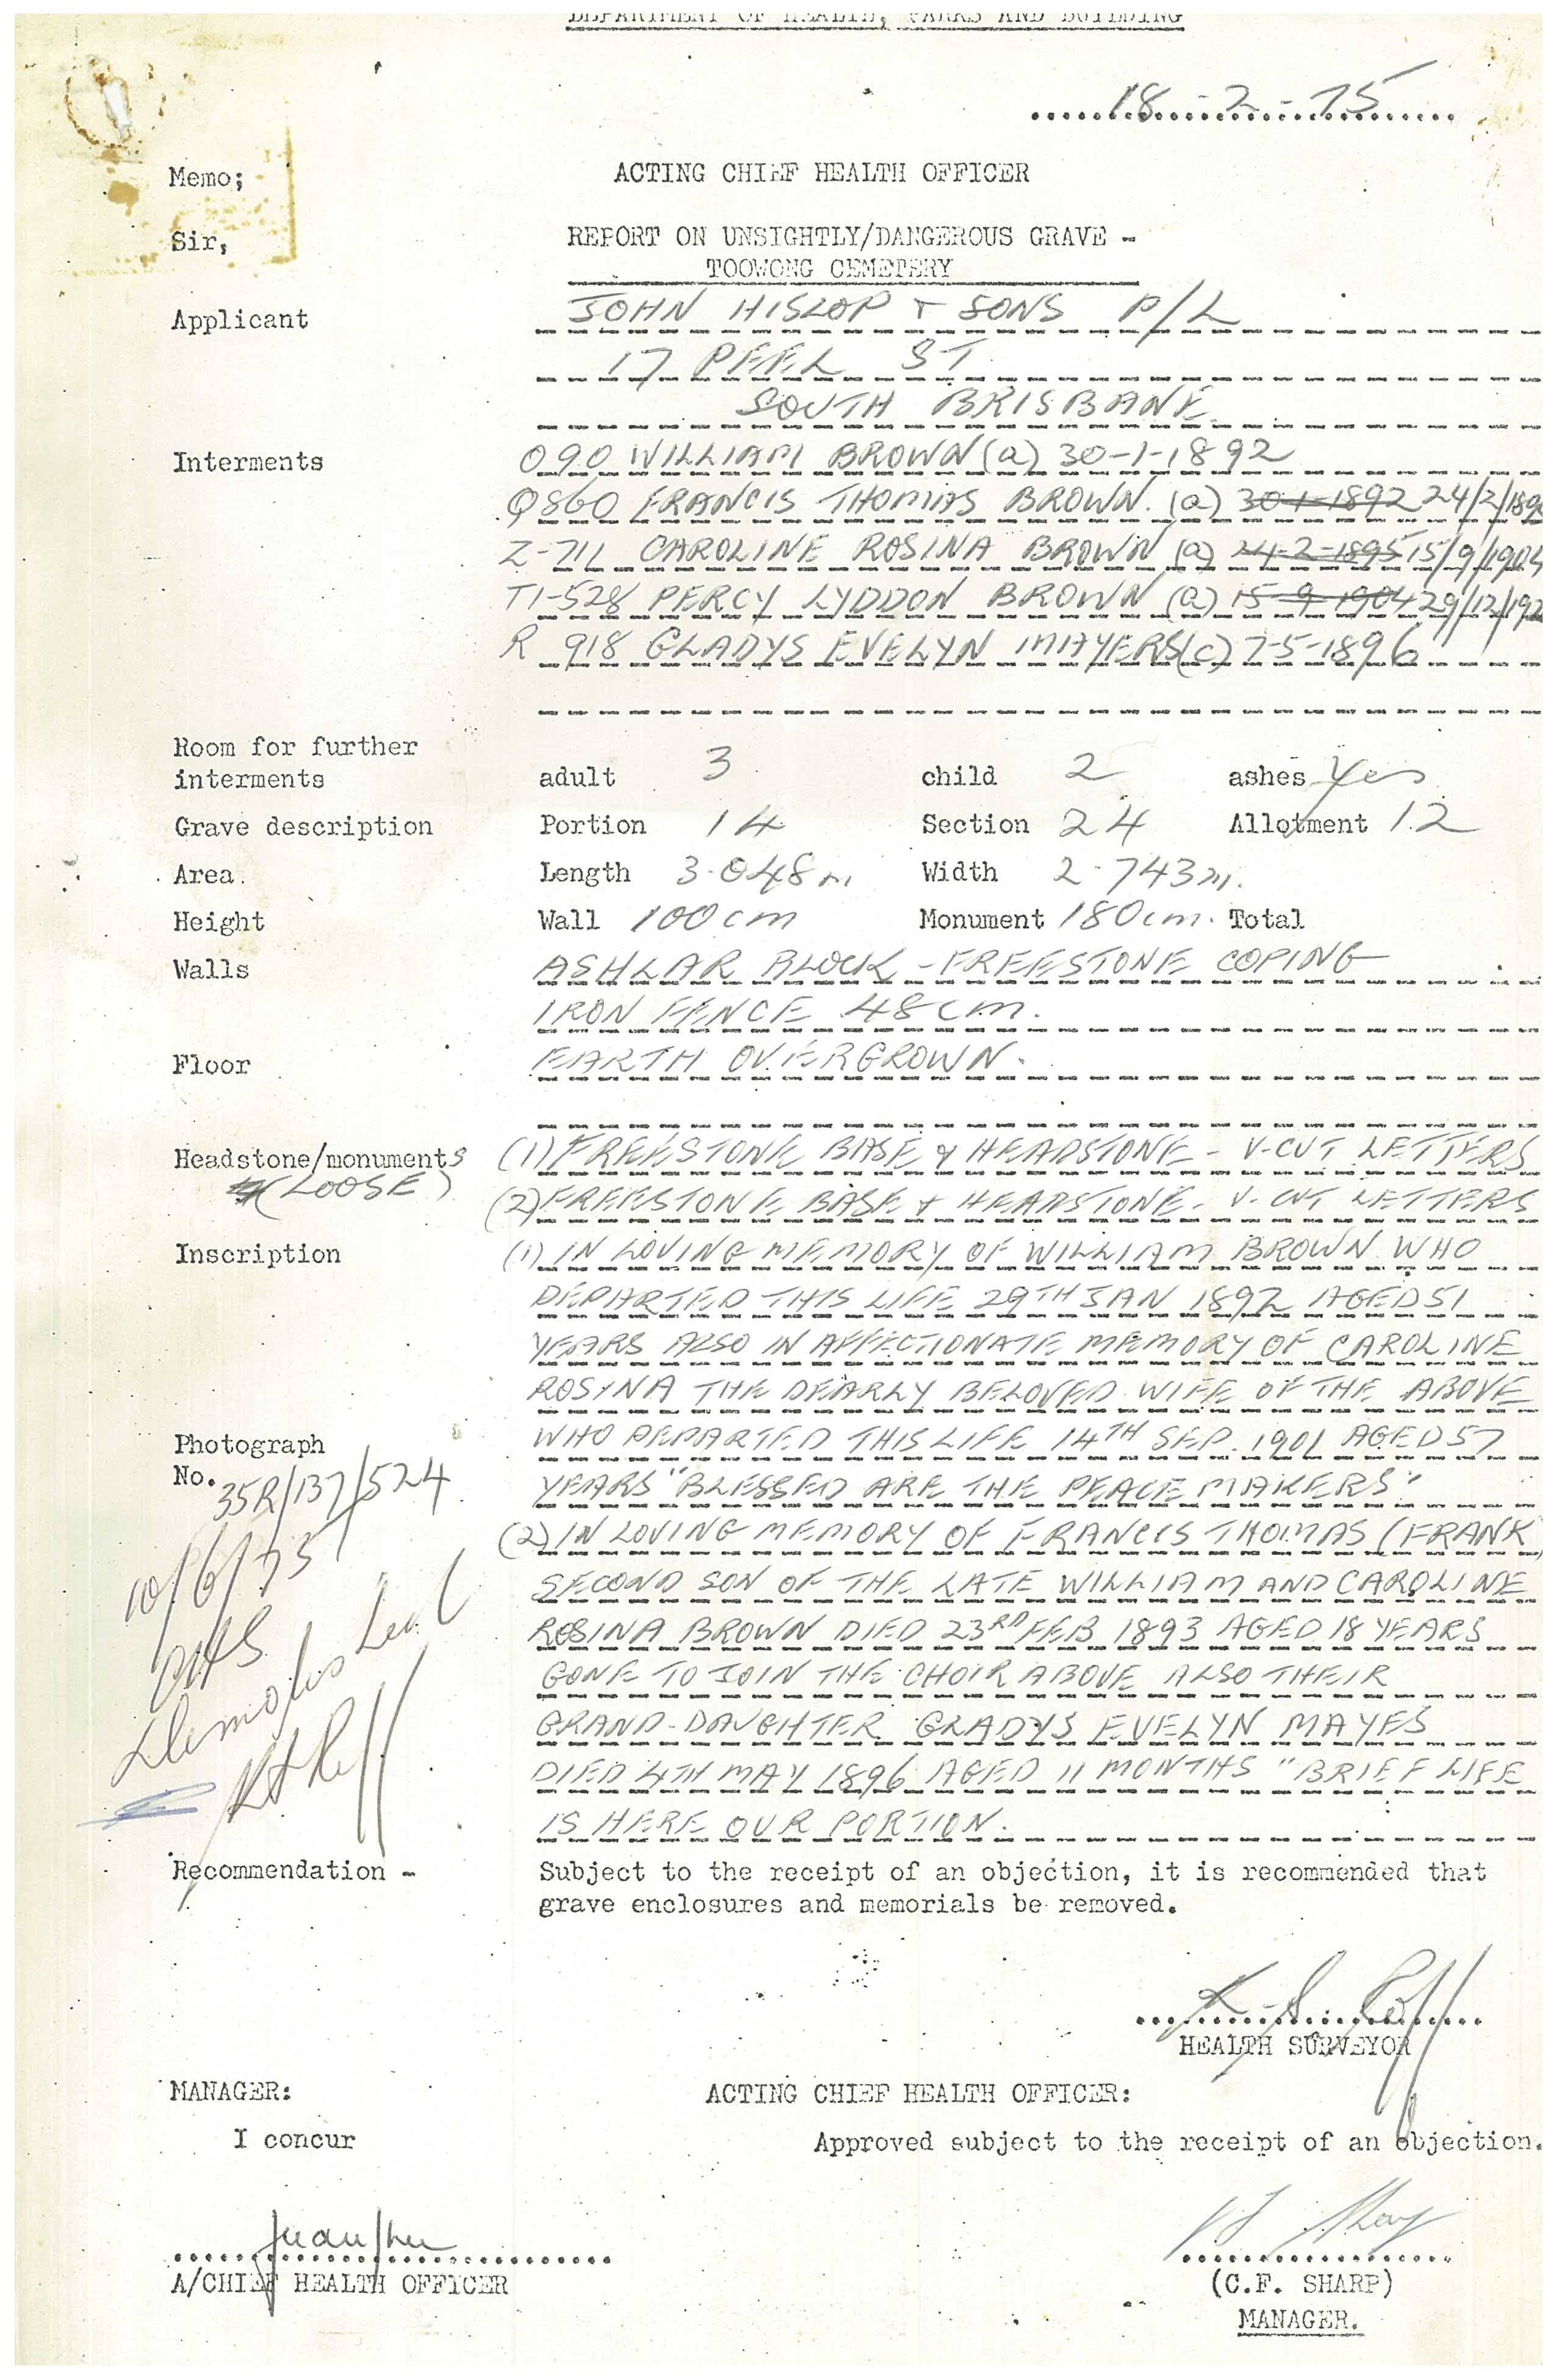 DEPARTMENT OF HEALTH, PARKS AND BUILDING
18-2-75
Memo;
ACTING CHIEF HEALTH OFFICER
Sir,
REPORT ON UNSIGHTLY/DANGEROUS GRAVE -
TOOWONG CEMETERY
Applicant JOHN HISLOP + SONS P/L
17 PEEL ST
SOUTH BRISBANE
Interments 090 WILLIAM BROWN (a) 30-1-1892
Q860 FRANCIS THOMAS BROWN. (a) 30-1-1892 24/2/189
Z-711 CAROLINE ROSINA BROWN (a) 24-2-1895 15/9/190
T1-528 PERCY LYDDON BROWN (a) 15-9-1904 29/12/192
R 918 GLADYS EVELYN MAYERS (c) 7-5-1896
Room for further
interments adult 3 child 2 ashes Yes
Grave description Portion 14 Section 24 Allotment 12
Area. Length 3.048m Width 2.743m.
Height Wall 100cm Monument 180cm. Total
Walls ASHLAR BLOCK - FREESTONE COPING
IRON FENCE 48cm.
Floor EARTH OVERGROWN.
Headstone/monuments (1) FREESTONE BASE & HEADSTONE - V-CUT LETTERS
(LOOSE) (2) FREESTONE BASE + HEADSTONE - V-CUT LETTERS
Inscription (1) IN LOVING MEMORY OF WILLIAM BROWN WHO
DEPARTED THIS LIFE 29TH JAN 1892 AGED 51
YEARS ALSO IN AFFECTIONATE MEMORY OF CAROLINE
ROSINA THE DEARLY BELOVED WIFE OF THE ABOVE
Photograph WHO DEPARTED THIS LIFE 14TH SEP. 1901 AGED 57
No. 35R/137/524 YEARS "BLESSED ARE THE PEACE MAKERS"
(2) IN LOVING MEMORY OF FRANCIS THOMAS (FRANK)
10/6/75 SECOND SON OF THE LATE WILLIAM AND CAROLINE
ROSINA BROWN DIED 23RD FEB 1893 AGED 18 YEARS
GONE TO JOIN THE CHOIR ABOVE ALSO THEIR
GRAND-DAUGHTER GLADYS EVELYN MAYES
DIED 4TH MAY 1896 AGED 11 MONTHS "BRIEF LIFE
IS HERE OUR PORTION.
Recommendation - Subject to the receipt of an objection, it is recommended that
grave enclosures and memorials be removed.
HEALTH SURVEYOR
MANAGER: ACTING CHIEF HEALTH OFFICER:
I concur Approved subject to the receipt of an objection.
A/CHIEF HEALTH OFFICER (C.F. SHARP)
MANAGER.